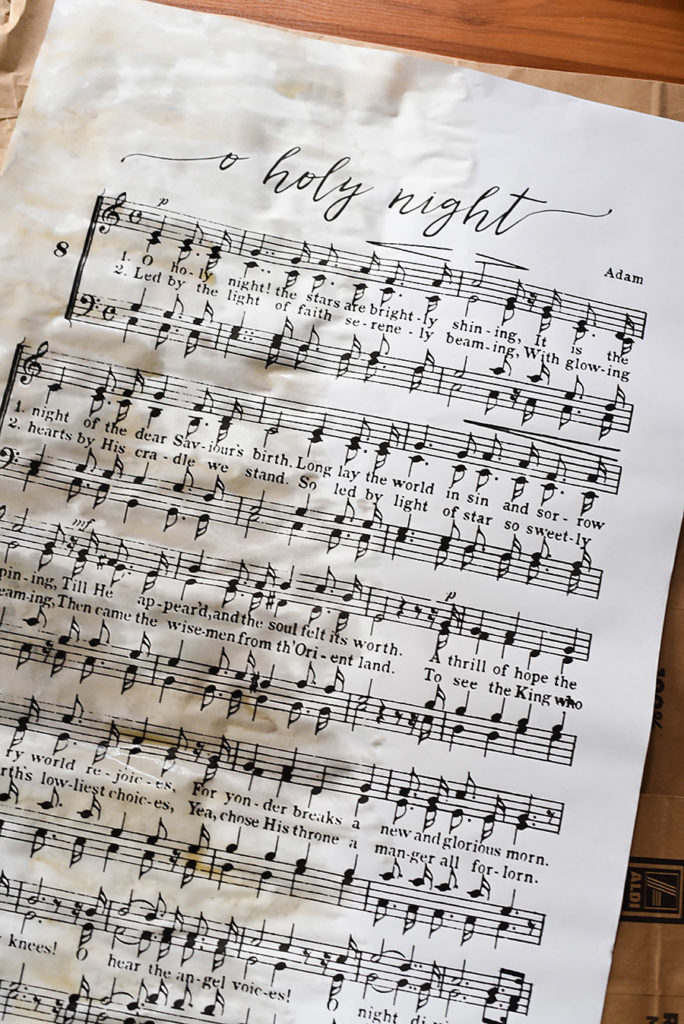 o holy night
Adam
p
8
1. O ho-ly night! the stars are bright-ly shin-ing, It is the
2. Led by the light of faith se-rene-ly beam-ing, With glow-ing
1. night of the dear Sav-iour's birth. Long lay the world in sin and sor-row
2. hearts by His cra-dle we stand. So led by light of star so sweet-ly
mf
p
pin-ing, Till He ap-peard, and the soul felt its worth. A thrill of hope the
eam-ing, Then came the wise-men from th'Ori-ent land. To see the King who
y world re-joic-es, For yon-der breaks a new and glorious morn.
rth's low-liest choic-es, Yea, chose His throne a man-ger all for-lorn.
knees! O hear the an-gel voic-es! O night di
100%
ALDI